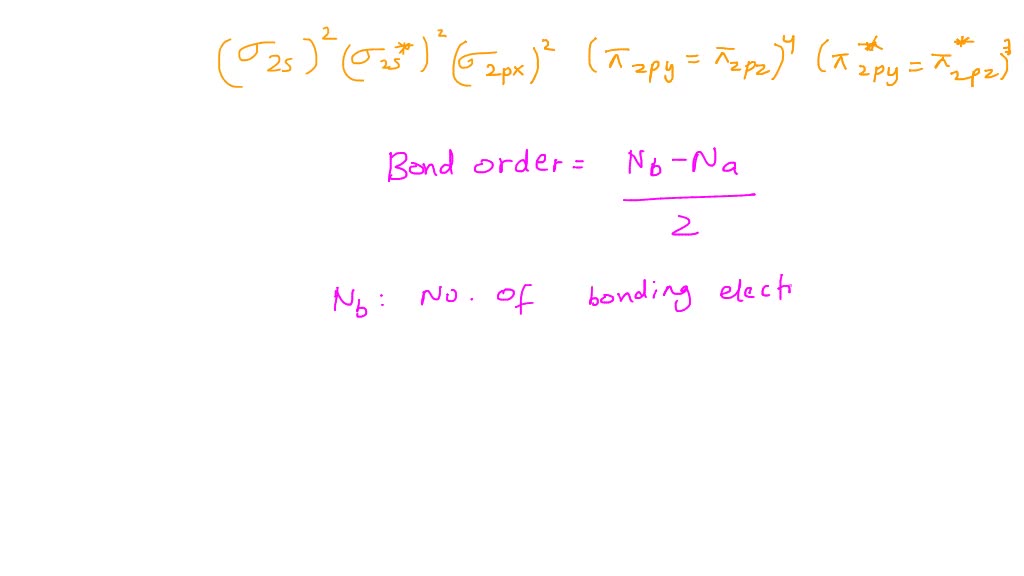 (σ2s)² (σ2s*)² (σ2px)² (π2py = π2pz)⁴ (π*2py = π*2pz)³
Bond order = Nb - Na
2
Nb : No. of bonding electr